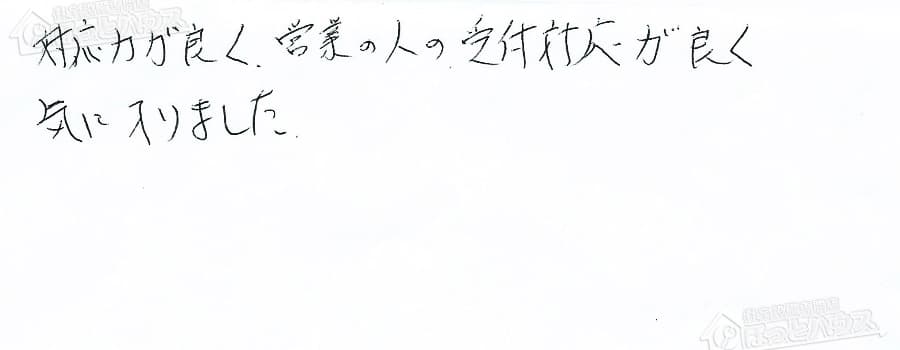 対応力が良く、営業の人の受付対応が良く
気に入りました。
ほっとハウス